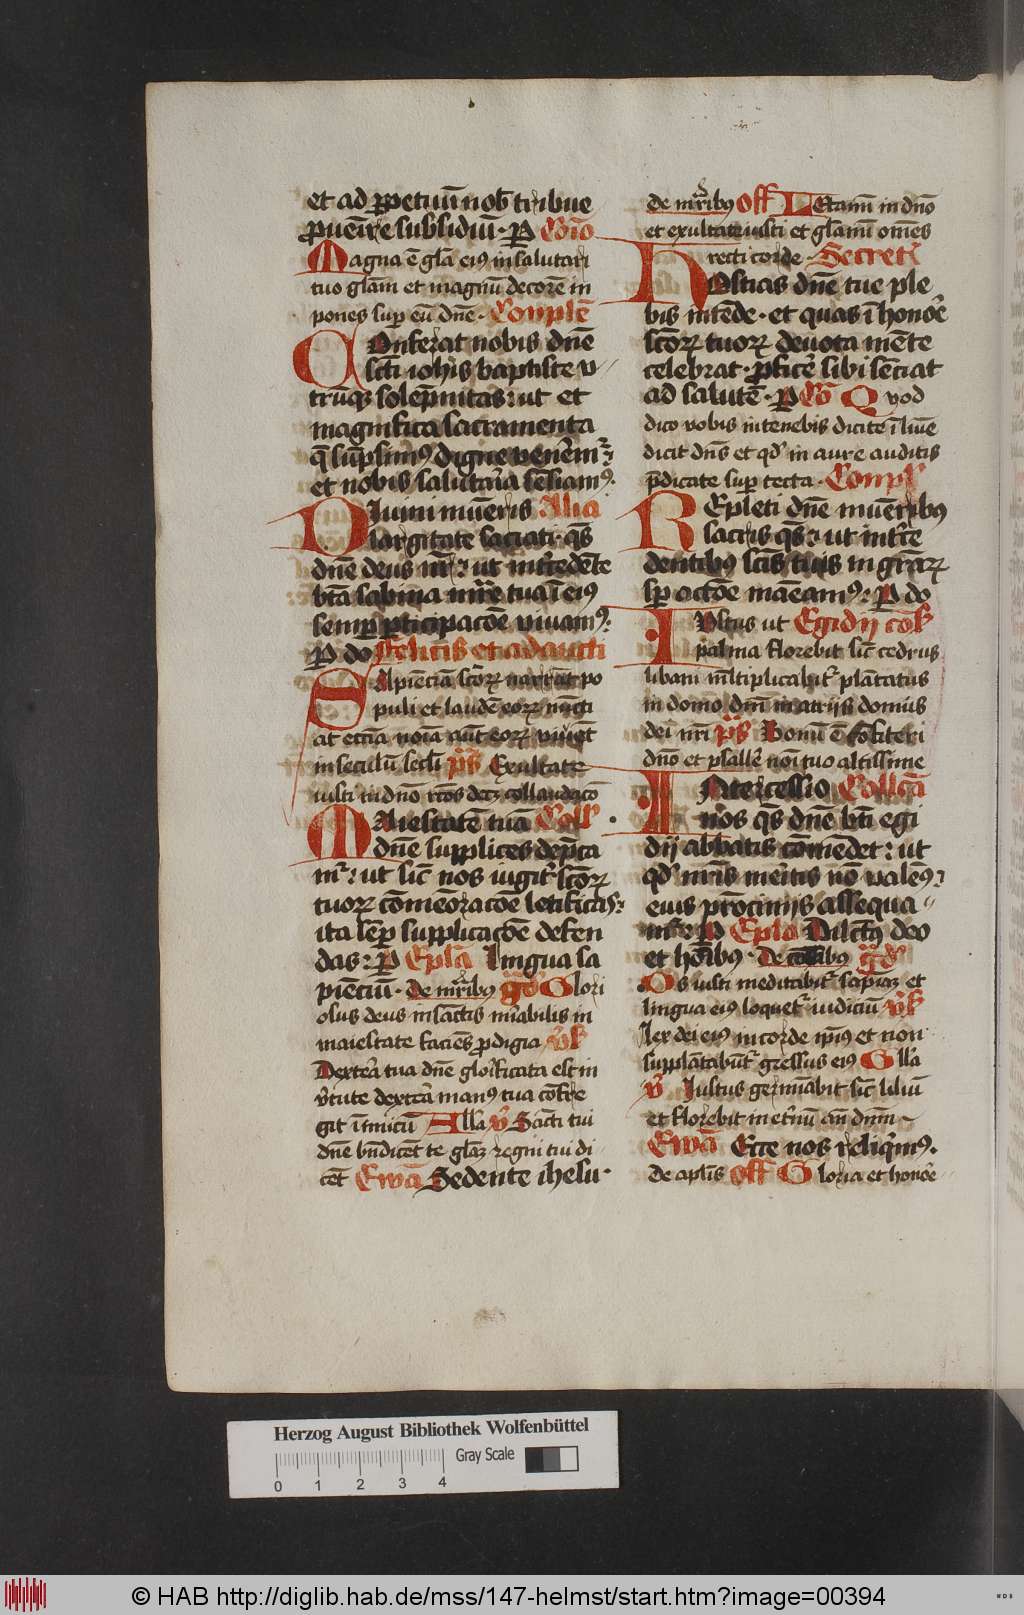 et ad ꝑpetuū nob̄ tribue
ꝓuēire subsidiū · P̲ Cōio
Magna ē gl̄a eiꝰ in salutari
tuo glām et magnū decorē in
pones suꝑ eū dn̄e · Conplē
COnferat nobis dn̄e
sc̄ti ioh̄is baptiste v//
trūqꝫ solēpnitas: ut et
magnifica sacramenta
q̄ sūpsimꝰ digne venērmꝰ:
et nobis salutaria sēciamꝰ:
DIuini mūeris Alia
largitate saciati · qs̄
dn̄e deus nr̄: ut int̄cedēte
btā sabina mr̄e tua ī eiꝰ
semꝑ ꝑticipacōe viuamꝰ:
P̲ do Felicis et adaucti
SApienciā sc̄orꝝ narrēt po
puli et laudē eorꝝ nūcci
at eccīa noīa aūt eorꝝ viuēt
in seculū secl̄i p̄s Exultate
iusti in dn̄o rc̄os decꝫ collaudacō
MAiestatē tuā Coll̄
dn̄e supplices dep̄ca
mꝰ: ut sic̄ nos iugit̄ sc̄orꝝ
tuorꝝ cōmēoracōe letificas:
ita sēꝑ supplicacōe defen
das: P̲ Epl̄a Lingua sa
piēciū · De mr̄ibꝰ gd̄ Glori
osus deus in sāctis mīabilis in
maiestate faciēs ꝓdigia v̄s
Dextera tua dn̄e glorificata est in
v̄tute dextera manꝰ tua cōfre
git īimicū Alla v̄ Sācti tui
dn̄e bn̄dicēt te glāꝫ regni tui di
cēt Ewā Sedente ihesu ·
de mr̄ibꝰ Off Letamī in dn̄o
et exultate iusti et glāmī om̄es
recti corde · Secret̄
HOstias dn̄e tue ple
bis intēde · et quas ī honōe
sc̄orꝝ tuorꝝ deuota mēte
celebrat · ꝓficē sibi sēciat
ad salutē · P̲ Cō Quod
dico vobis in tenebis dicite ī lūie
dicit dn̄s et qd̄ in aure auditis
p̄dicate suꝑ tecta · Conpl̄
REpleti dn̄e mūeribꝰ
sacris qs̄: ut int̄ce
dentibꝰ sc̄is tuis in grārꝝ
sꝑ actōe māeamꝰ: P̲ do
IUstus ut Egidij cōf
palma florebit sic̄ cedrus
libani mltiplicabit̄ plātatus
in domo dn̄i in atrijs domus
dei nr̄i p̄s Bonū ē cōfiteri
dn̄o et psallē noī tuo altissime
INtercessio Collcā
nos qs̄ dn̄e bt̄i egi
dij abbatis cōmēdet: ut
qd̄ nr̄is meritis nō valeꝰ:
eius pr̄ocinijs assequa//
mꝰ: P̲ Epl̄a Dilectꝰ deo
et hoībꝰ · De cōfībꝰ gd̄
Os iusti meditabit̄ sapiaꝫ et
lingua eiꝰ loquet̄ iudiciū v̄s
Lex dei eiꝰ in corde ip̄iꝰ et non
supplātabūt̄ gressus eiꝰ Alla
v̄ Iustus germīabit sic̄ liliū
et florebit in et̄nū an̄ dn̄m
Ewā Ecce nos reliqimꝰ ·
de apl̄is Off Gloria et honōe
Herzog August Bibliothek Wolfenbüttel
Gray Scale
0 1 2 3 4
© HAB http://diglib.hab.de/mss/147-helmst/start.htm?image=00394